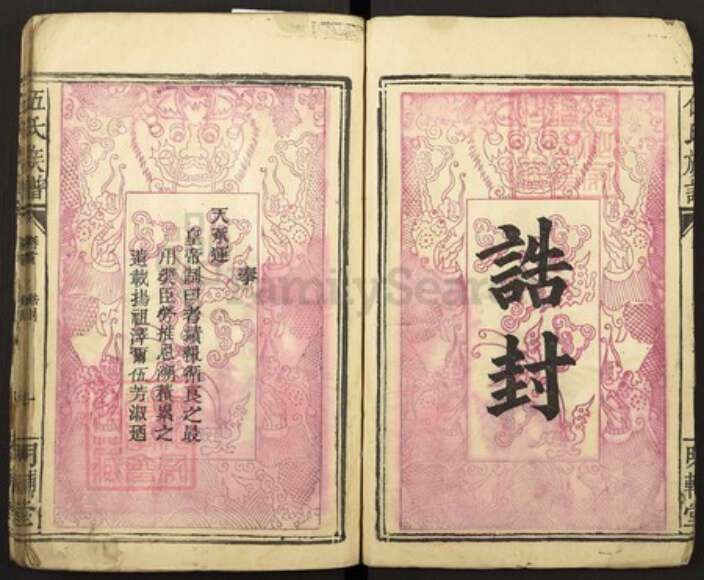 誥封
奉
天承運
皇帝制曰考績報循良之最
用獎臣勞推恩溯積累之
遺載揚祖澤爾伍芳淑迺
伍氏族譜
明輔堂
FamilySearch